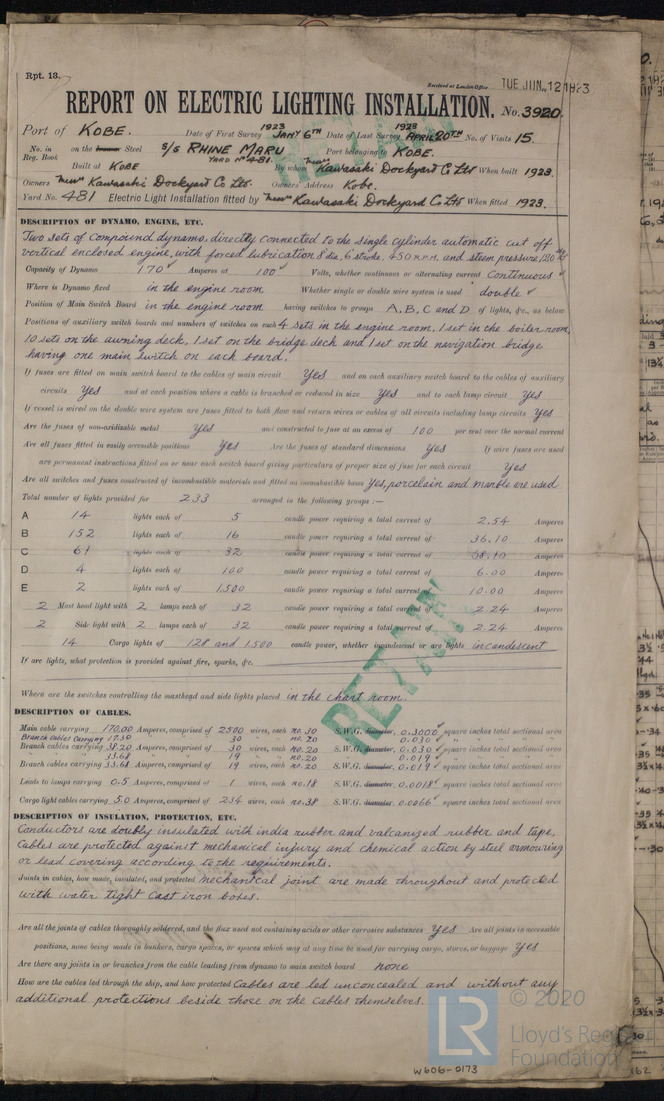 Rpt. 13.
Received at London Office TUE. JUN. 12 1923
REPORT ON ELECTRIC LIGHTING INSTALLATION. No. 3920.
Port of KOBE. Date of First Survey 1923 JANY 6TH Date of Last Survey 1923 APRIL 20TH No. of Visits 15.
No. in Reg. Book on the Steel S/S RHINE MARU Port belonging to KOBE.
YARD No 481.
Built at KOBE By whom Messrs Kawasaki Dockyard Co Ltd When built 1923.
Owners Messrs Kawasaki Dockyard Co Ltd. Owners' Address Kobe.
Yard No. 481 Electric Light Installation fitted by Messrs Kawasaki Dockyard Co Ltd When fitted 1923.
DESCRIPTION OF DYNAMO, ENGINE, ETC.
Two sets of compound dynamo, directly connected to the single cylinder automatic cut off
vertical enclosed engine, with forced lubrication 8 dia, 6 stroke, 450 R.P.M. and steem pressure, 120
Capacity of Dynamo 170 Amperes at 100 Volts, whether continuous or alternating current Continuous
Where is Dynamo fixed in the engine room Whether single or double wire system is used double
Position of Main Switch Board in the engine room having switches to groups A, B, C and D of lights, &c., as below
Positions of auxiliary switch boards and numbers of switches on each 4 sets in the engine room, 1 set in the boiler room,
10 sets on the awning deck, 1 set on the bridge deck and 1 set on the navigation bridge
having one main switch on each board.
If fuses are fitted on main switch board to the cables of main circuit Yes and on each auxiliary switch board to the cables of auxiliary
circuits Yes and at each position where a cable is branched or reduced in size Yes and to each lamp circuit Yes
If vessel is wired on the double wire system are fuses fitted to both flow and return wires or cables of all circuits including lamp circuits Yes
Are the fuses of non-oxidizable metal Yes and constructed to fuse at an excess of 100 per cent over the normal current
Are all fuses fitted in easily accessible positions Yes Are the fuses of standard dimensions Yes If wire fuses are used
are permanent instructions fitted on or near each switch board giving particulars of proper size of fuse for each circuit Yes
Are all switches and fuses constructed of incombustible materials and fitted on incombustible bases Yes, porcelain and marble are used
Total number of lights provided for 233 arranged in the following groups :—
A 14 lights each of 5 candle power requiring a total current of 2.54 Amperes
B 152 lights each of 16 candle power requiring a total current of 36.10 Amperes
C 61 lights each of 32 candle power requiring a total current of Amperes
D 4 lights each of 100 candle power requiring a total current of 6.00 Amperes
E 2 lights each of 1,500 candle power requiring a total current of 10.00 Amperes
2 Mast head light with 2 lamps each of 32 candle power requiring a total current of 2.24 Amperes
2 Side light with 2 lamps each of 32 candle power requiring a total current of 2.24 Amperes
14 Cargo lights of 128 and 1,500 candle power, whether incandescent or arc lights incandescent
If arc lights, what protection is provided against fire, sparks, &c.
Where are the switches controlling the masthead and side lights placed in the chart room.
RETAIN
DESCRIPTION OF CABLES.
Main cable carrying 170.00 Amperes, comprised of 2500 wires, each no. 30 S.W.G. diameter, 0.3000 square inches total sectional area
Branch cables carrying 17.50 30 no. 20 0.030 " " " "
Branch cables carrying 38.20 Amperes, comprised of 30 wires, each no. 20 S.W.G. diameter, 0.030 square inches total sectional area
" 33.68 19 no. 20 0.019 " " " "
Branch cables carrying 33.68 Amperes, comprised of 19 wires, each no. 20 S.W.G. diameter, 0.019 square inches total sectional area
Leads to lamps carrying 0.5 Amperes, comprised of 1 wires, each no. 18 S.W.G. diameter, 0.0018 square inches total sectional area
Cargo light cables carrying 5.0 Amperes, comprised of 234 wires, each no. 38 S.W.G. diameter, 0.0066 square inches total sectional area
DESCRIPTION OF INSULATION, PROTECTION, ETC.
Conductors are doubly insulated with india rubber and valcanized rubber and tape,
Cables are protected against mechanical injury and chemical action by steel armouring
or lead covering according to the requirements.
Joints in cables, how made, insulated, and protected Mechanical joint are made throughout and protected
with water tight cast iron boxes.
Are all the joints of cables thoroughly soldered, and the flux used not containing acids or other corrosive substances Yes Are all joints in accessible
positions, none being made in bunkers, cargo spaces, or spaces which may at any time be used for carrying cargo, stores, or baggage Yes
Are there any joints in or branches from the cable leading from dynamo to main switch board none
How are the cables led through the ship, and how protected Cables are led unconcealed and without any
additional protections beside those on the cables themselves.
© 2020
LR
Lloyd's Register
Foundation
W606-0173